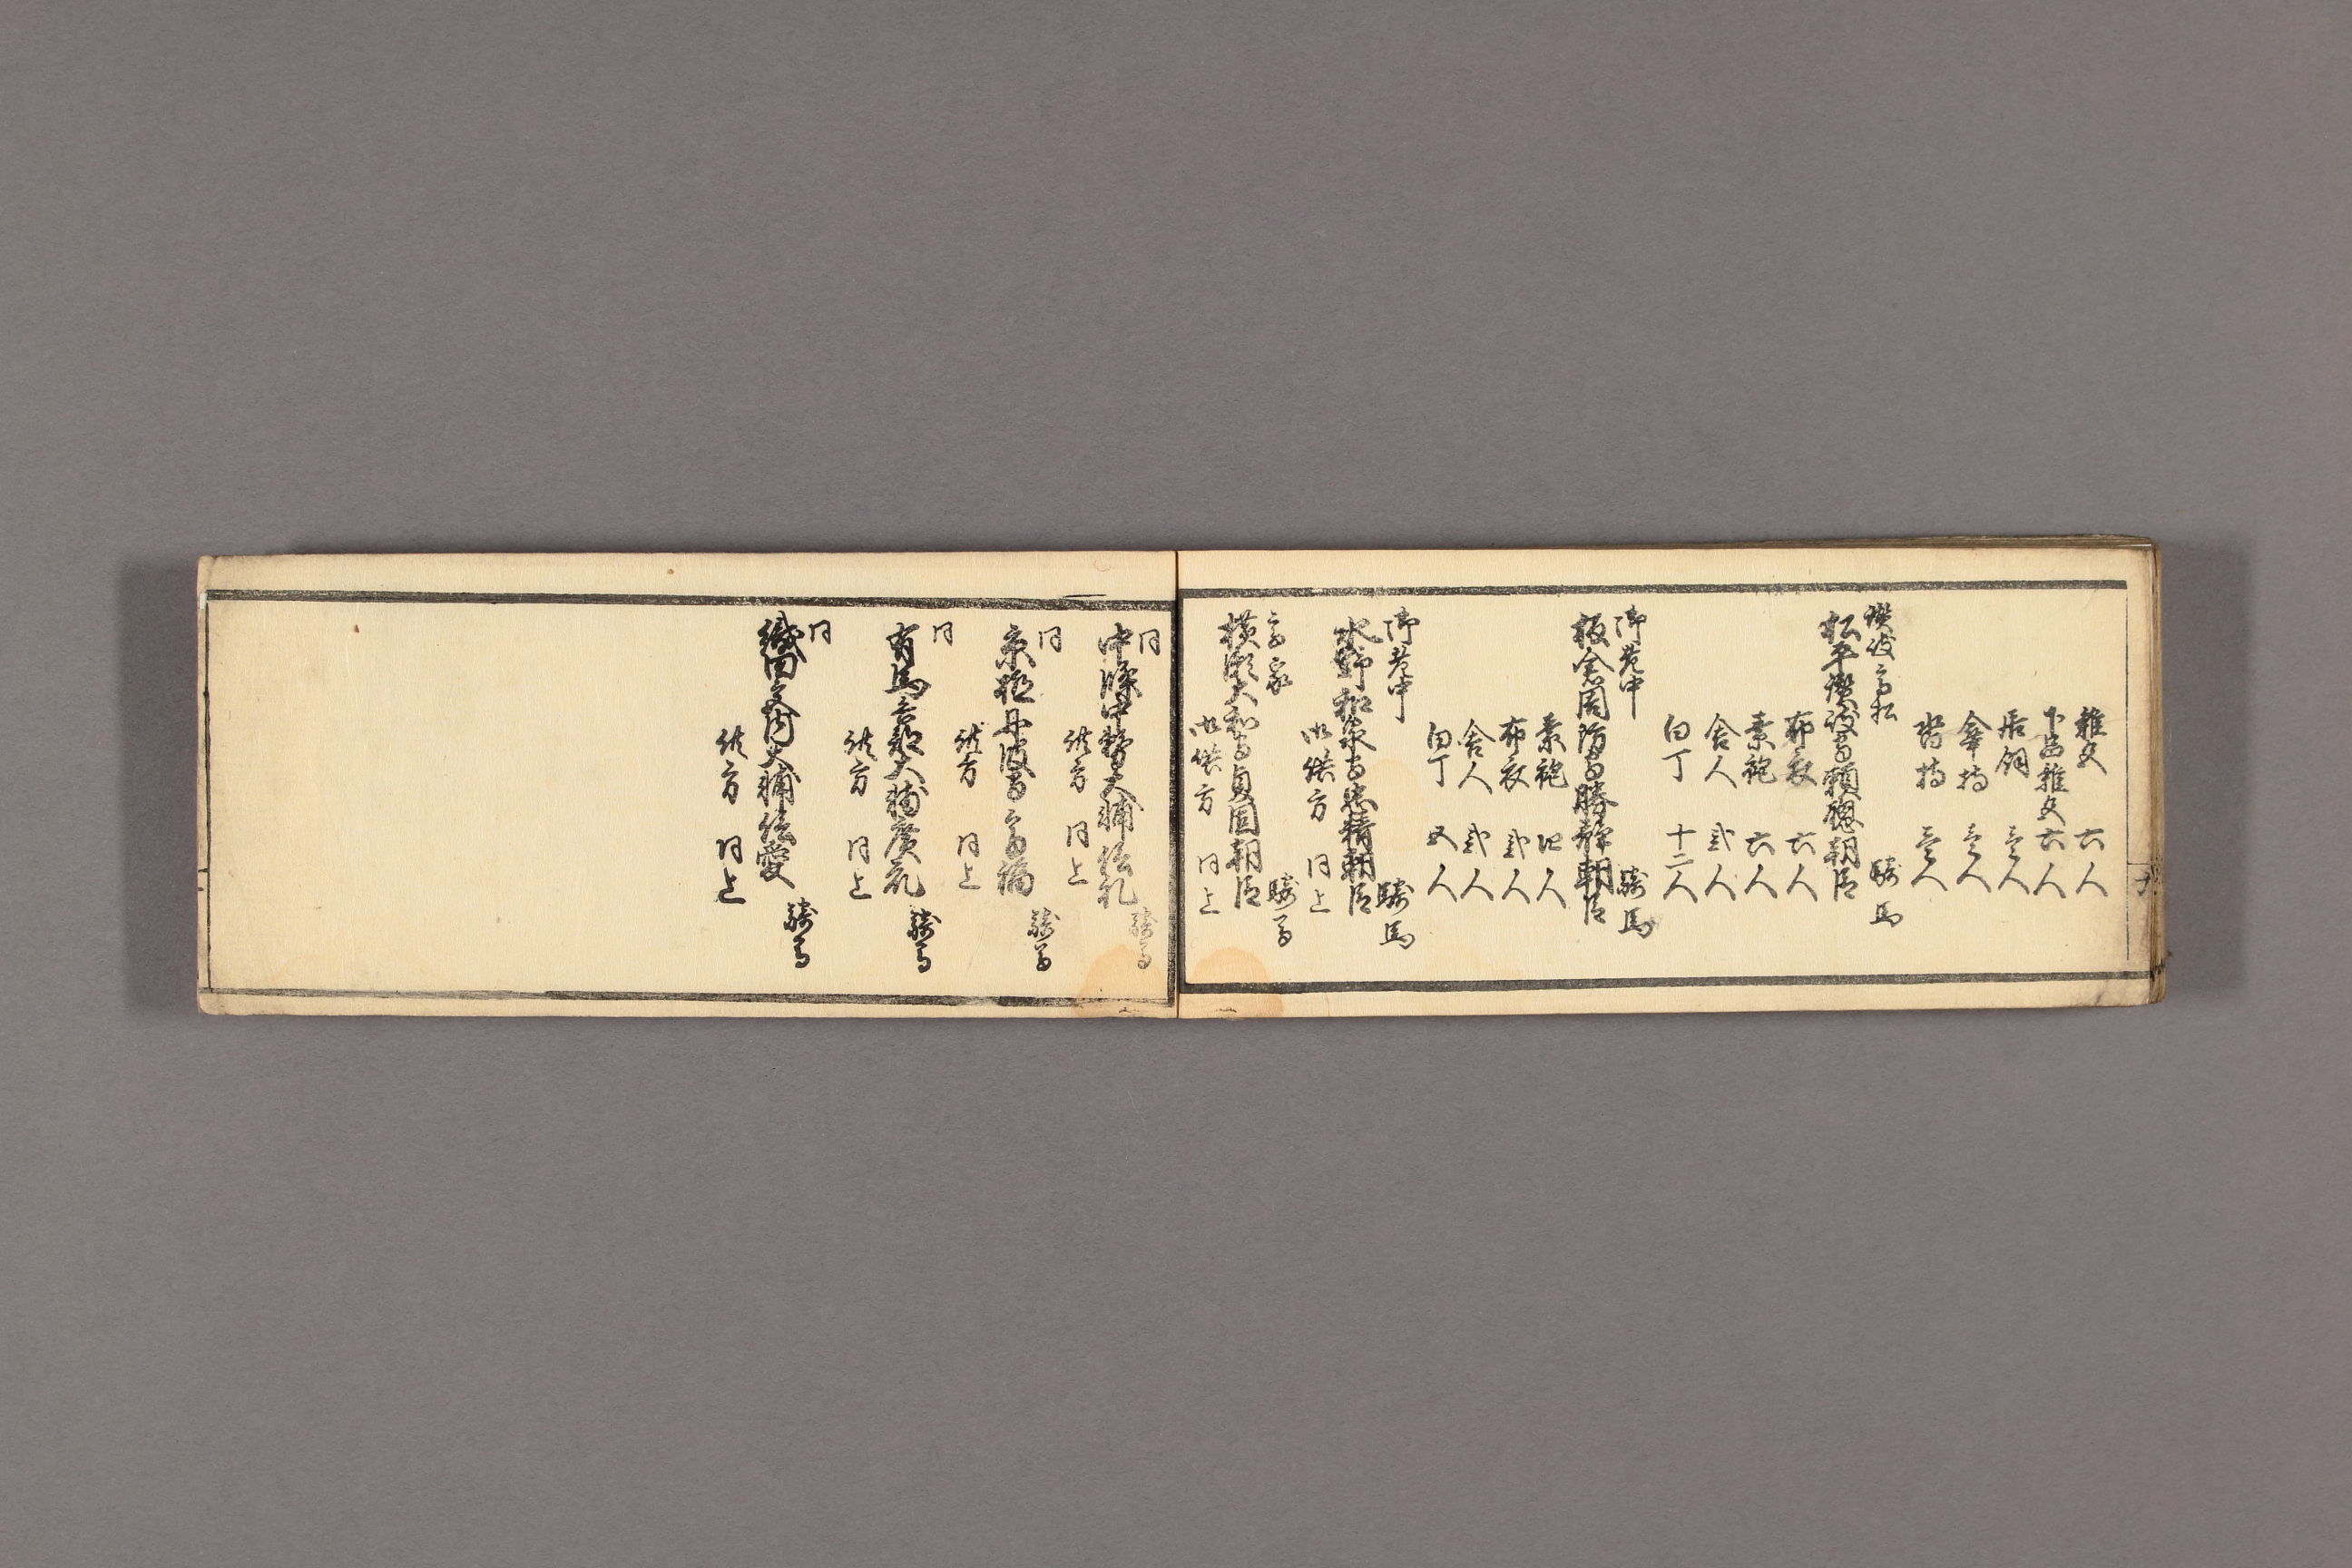 雑色　六人
下臈雑色　六人
居飼　壱人
傘持　壱人
沓持　壱人
讃岐高松
松平讃岐守頼聰朝臣　騎馬
布衣　六人
素袍　六人
舎人　弐人
白丁　十二人
御老中
板倉周防守勝静朝臣　騎馬
素袍　四人
布衣　弐人
舎人　弐人
白丁　五人
御老中
水野和泉守忠精朝臣　騎馬
御供方　同上
高家
横瀬大和守貞固朝臣　騎馬
御供方　同上
同
中條中務大輔信礼　騎馬
供方　同上
同
京極丹波守高福　騎馬
供方　同上
同
有馬兵部大輔廣衆　騎馬
供方　同上
同
織田宮内大輔信愛　騎馬
供方　同上